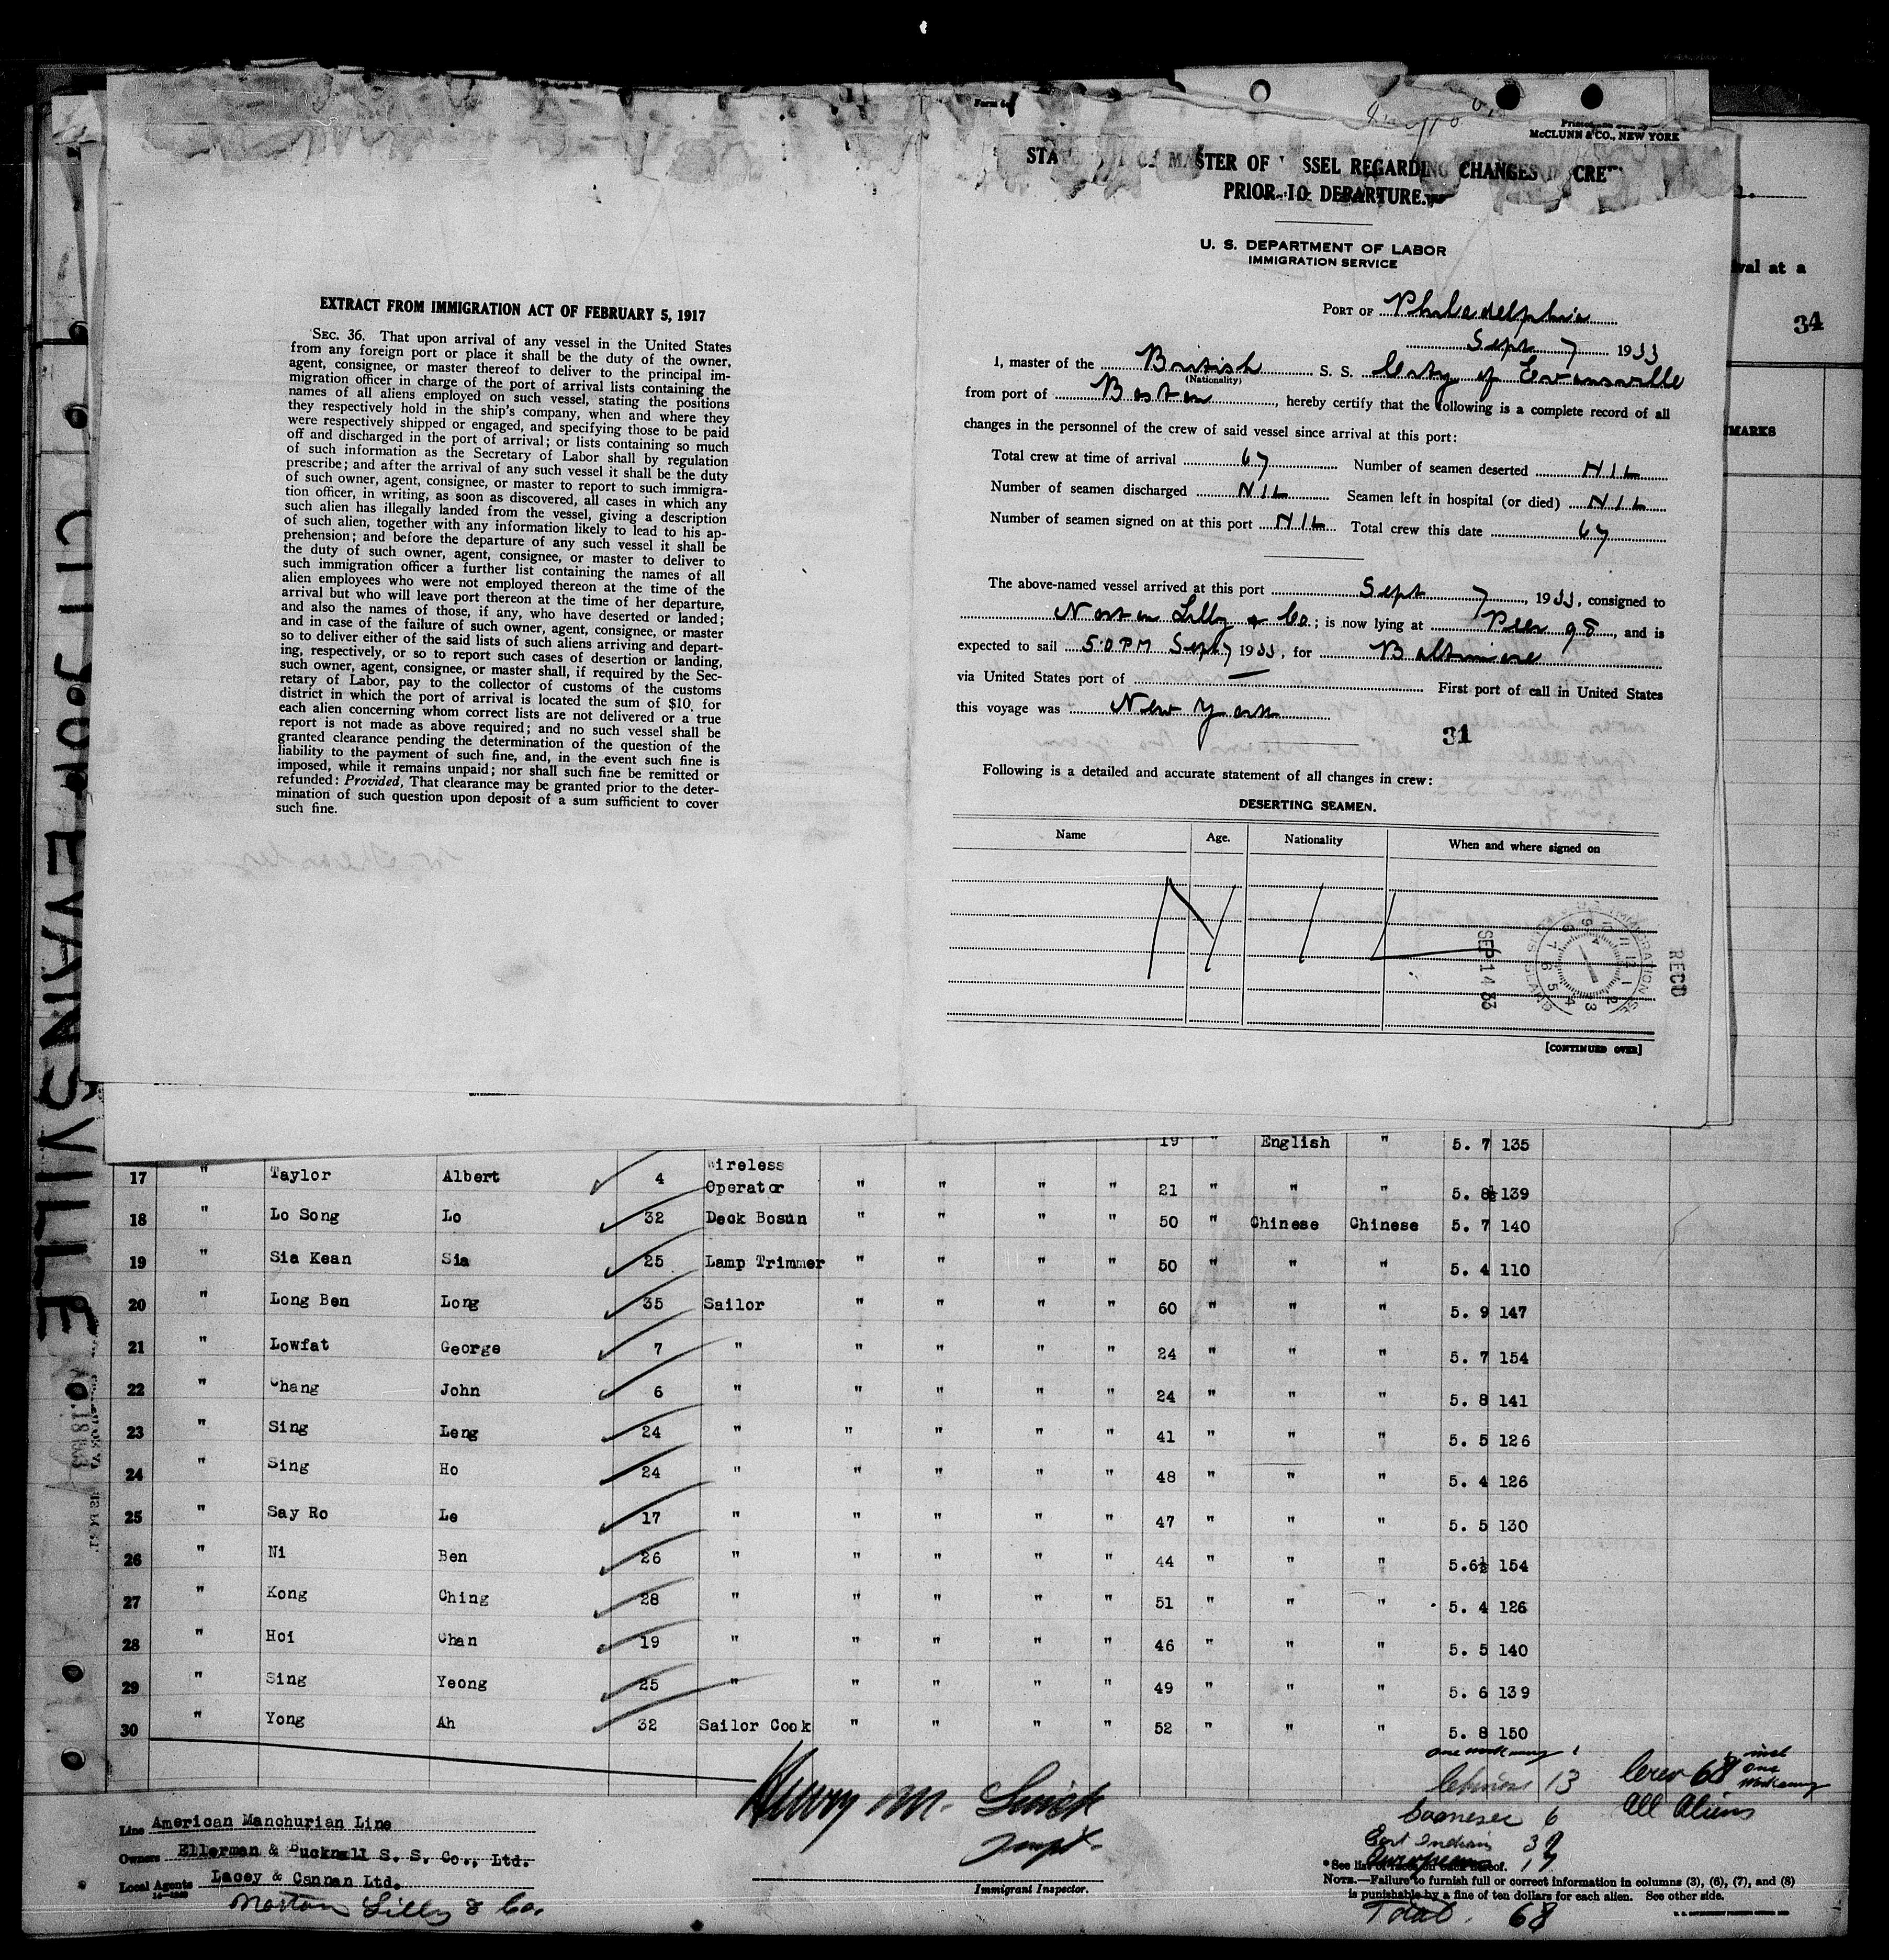 Form 6
McCLUNN & CO., NEW YORK
MASTER OF SSEL REGARDING CHANGES CRE
PRIOR TO DEPARTURE.
U. S. DEPARTMENT OF LABOR
IMMIGRATION SERVICE
EXTRACT FROM IMMIGRATION ACT OF FEBRUARY 5, 1917
SEC. 36. That upon arrival of any vessel in the United States
from any foreign port or place it shall be the duty of the owner,
agent, consignee, or master thereof to deliver to the principal im-
migration officer in charge of the port of arrival lists containing the
names of all aliens employed on such vessel, stating the positions
they respectively hold in the ship's company, when and where they
were respectively shipped or engaged, and specifying those to be paid
off and discharged in the port of arrival; or lists containing so much
of such information as the Secretary of Labor shall by regulation
prescribe; and after the arrival of any such vessel it shall be the duty
of such owner, agent, consignee, or master to report to such immigra-
tion officer, in writing, as soon as discovered, all cases in which any
such alien has illegally landed from the vessel, giving a description
of such alien, together with any information likely to lead to his ap-
prehension; and before the departure of any such vessel it shall be
the duty of such owner, agent, consignee, or master to deliver to
such immigration officer a further list containing the names of all
alien employees who were not employed thereon at the time of the
arrival but who will leave port thereon at the time of her departure,
and also the names of those, if any, who have deserted or landed;
and in case of the failure of such owner, agent, consignee, or master
so to deliver either of the said lists of such aliens arriving and depart-
ing, respectively, or so to report such cases of desertion or landing,
such owner, agent, consignee, or master shall, if required by the Sec-
retary of Labor, pay to the collector of customs of the customs
district in which the port of arrival is located the sum of $10. for
each alien concerning whom correct lists are not delivered or a true
report is not made as above required; and no such vessel shall be
granted clearance pending the determination of the question of the
liability to the payment of such fine, and, in the event such fine is
imposed, while it remains unpaid; nor shall such fine be remitted or
refunded: Provided, That clearance may be granted prior to the deter-
mination of such question upon deposit of a sum sufficient to cover
such fine.
PORT OF Philadelphia
Sept 7 1933
I, master of the British S. S. City of Evansville
(Nationality)
from port of Boston, hereby certify that the following is a complete record of all
changes in the personnel of the crew of said vessel since arrival at this port:
Total crew at time of arrival 67 Number of seamen deserted NIL
Number of seamen discharged NIL Seamen left in hospital (or died) NIL
Number of seamen signed on at this port NIL Total crew this date 67
The above-named vessel arrived at this port Sept 7, 1933, consigned to
Norton Lilly & Co.; is now lying at Pier 98, and is
expected to sail 5.0 PM Sept 7 1933, for Baltimore
via United States port of — First port of call in United States
this voyage was New York
31
Following is a detailed and accurate statement of all changes in crew:
DESERTING SEAMEN.
Name Age. Nationality When and where signed on
NIL
SEP 14 33
RECD
[CONTINUED OVER]
val at a
34
MARKS
EVANSVILLE
19 " English " 5. 7 135
17 " Taylor Albert 4 Wireless Operator " " " " 21 " " " 5. 8½ 139
18 " Lo Song Lo 32 Deck Bosun " " " " 50 " Chinese Chinese 5. 7 140
19 " Sia Kean Sia 25 Lamp Trimmer " " " " 50 " " " 5. 4 110
20 " Long Ben Long 35 Sailor " " " " 60 " " " 5. 9 147
21 " Lowfat George 7 " " " " " 24 " " " 5. 7 154
22 " Chang John 6 " " " " " 24 " " " 5. 8 141
23 " Sing Leng 24 " " " " " 41 " " " 5. 5 126
24 " Sing Ho 24 " " " " " 48 " " " 5. 4 126
25 " Say Ro Le 17 " " " " " 47 " " " 5. 5 130
26 " Ni Ben 26 " " " " " 44 " " " 5.6½ 154
27 " Kong Ching 28 " " " " " 51 " " " 5. 4 126
28 " Hoi Chan 19 " " " " " 46 " " " 5. 5 140
29 " Sing Yeong 25 " " " " " 49 " " " 5. 6 139
30 " Yong Ah 32 Sailor Cook " " " " 52 " " " 5. 8 150
one workaway 1
Chinese 13
Crew 68 incl one workaway
All Aliens
6
East Indian
European 17
Total 68
Line American Manchurian Line
Owners Ellerman & Bucknall S. S. Co., Ltd.
Local Agents Lacey & Cannan Ltd.
Norton Lilly & Co.
Henry M.
Immigrant Inspector.
*See list of races on back hereof.
NOTE.—Failure to furnish full or correct information in columns (3), (6), (7), and (8)
is punishable by a fine of ten dollars for each alien. See other side.